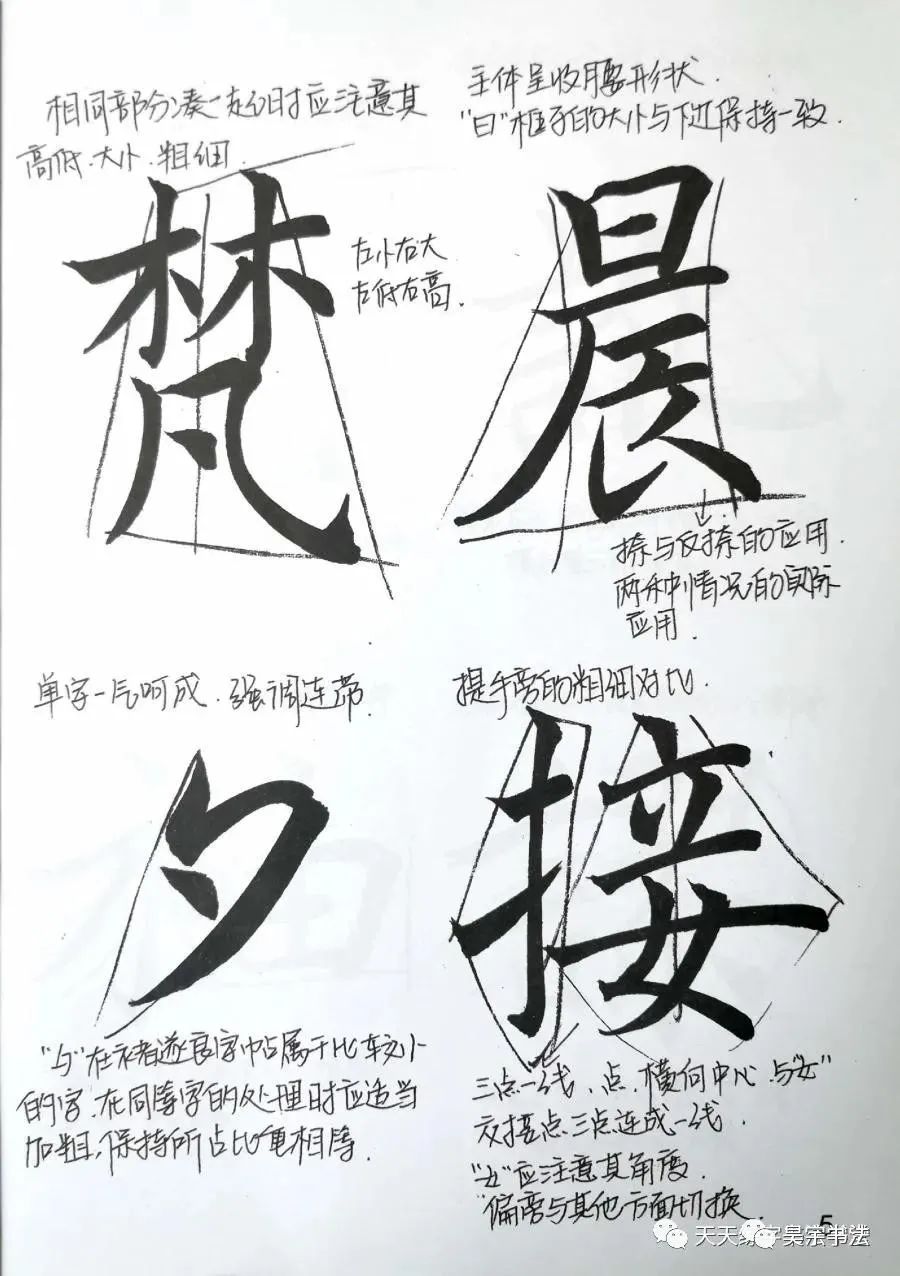 相同部分凑一起时应注意其
高低.大小.粗细.
梵
左小右大
左低右高.
主体呈收腰形状.
"日"框子的大小与下边保持一致.
晨
捺与反捺的应用.
两种情况的实际
应用.
单字一气呵成.强调连带.
夕
"夕"在褚遂良字中占属于比较小
的字.在同等字的处理时应适当
加粗,保持所占比重相等.
提手旁的粗细对比.
接
三点一线、点.横向中心.与"女"
交接点三点连成一线.
"女"应注意其角度.
"偏旁与其他方面切换.
5
天天练字昊宗书法